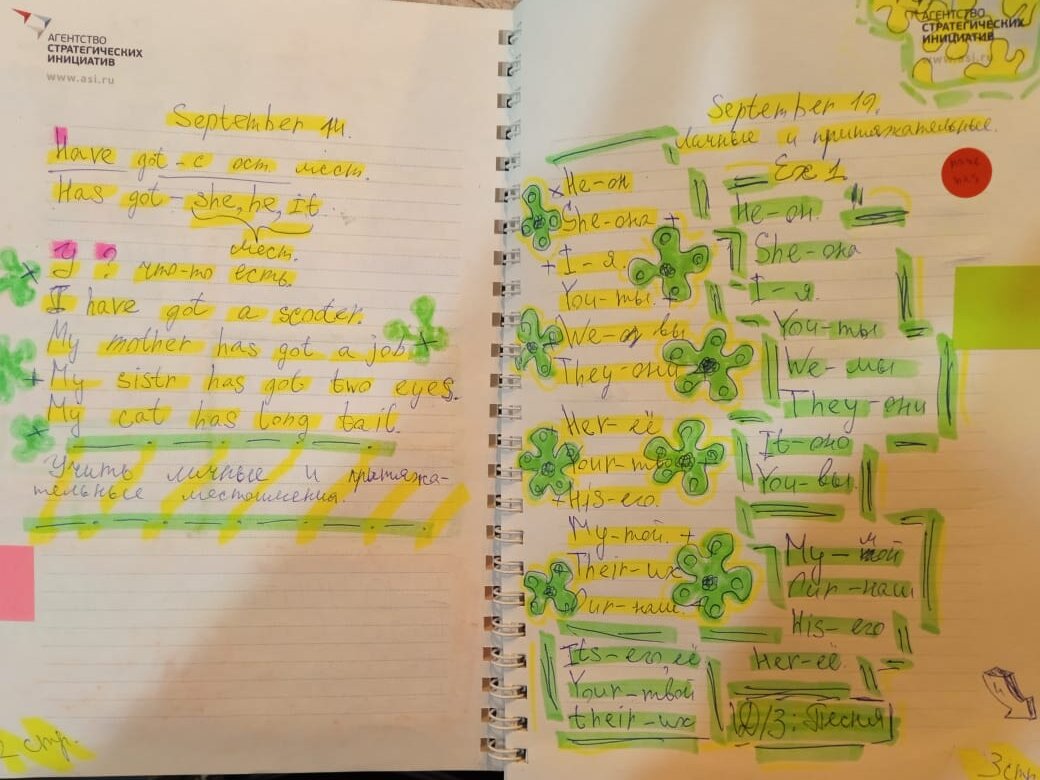 АГЕНТСТВО
СТРАТЕГИЧЕСКИХ
ИНИЦИАТИВ
www.asi.ru
September 14.
Have got - с ост мест.
Has got - she, he, it
мест.
У ? что-то есть.
I have got a scooter.
My mother has got a job
My sistr has got two eyes.
My cat has long tail.
Учить личные и притяжа-
тельные местоимения.
2 стр.
АГЕНТСТВО
СТРАТЕГИЧЕСКИХ
ИНИЦИАТИВ
www.asi.ru
September 19.
Личные и притяжательные.
He-он
She-она +
+ I-я
You-ты. +
We- вы
They-они
Her-её
Your-тво
+ His-его.
My-мой. +
Their-их
Our-наш. +
Its-его, её
Your-твой
their-их
Ex 1.
He-он.
She-она
I-я.
You-ты
We-мы
They-они
It-оно
You-вы.
My-мой
Our-наш
His-его
Her-её.
Д/З: Песня
3 стр